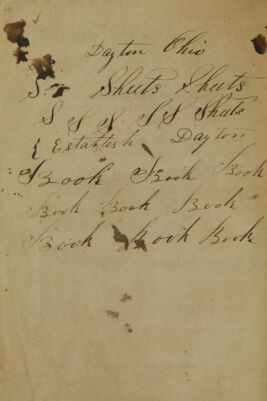 Dayton Ohio
S Sheets Sheets
S S S S S Sheets
{ Establish Dayton
Book Book Book
Book Book Book
Book Book Book